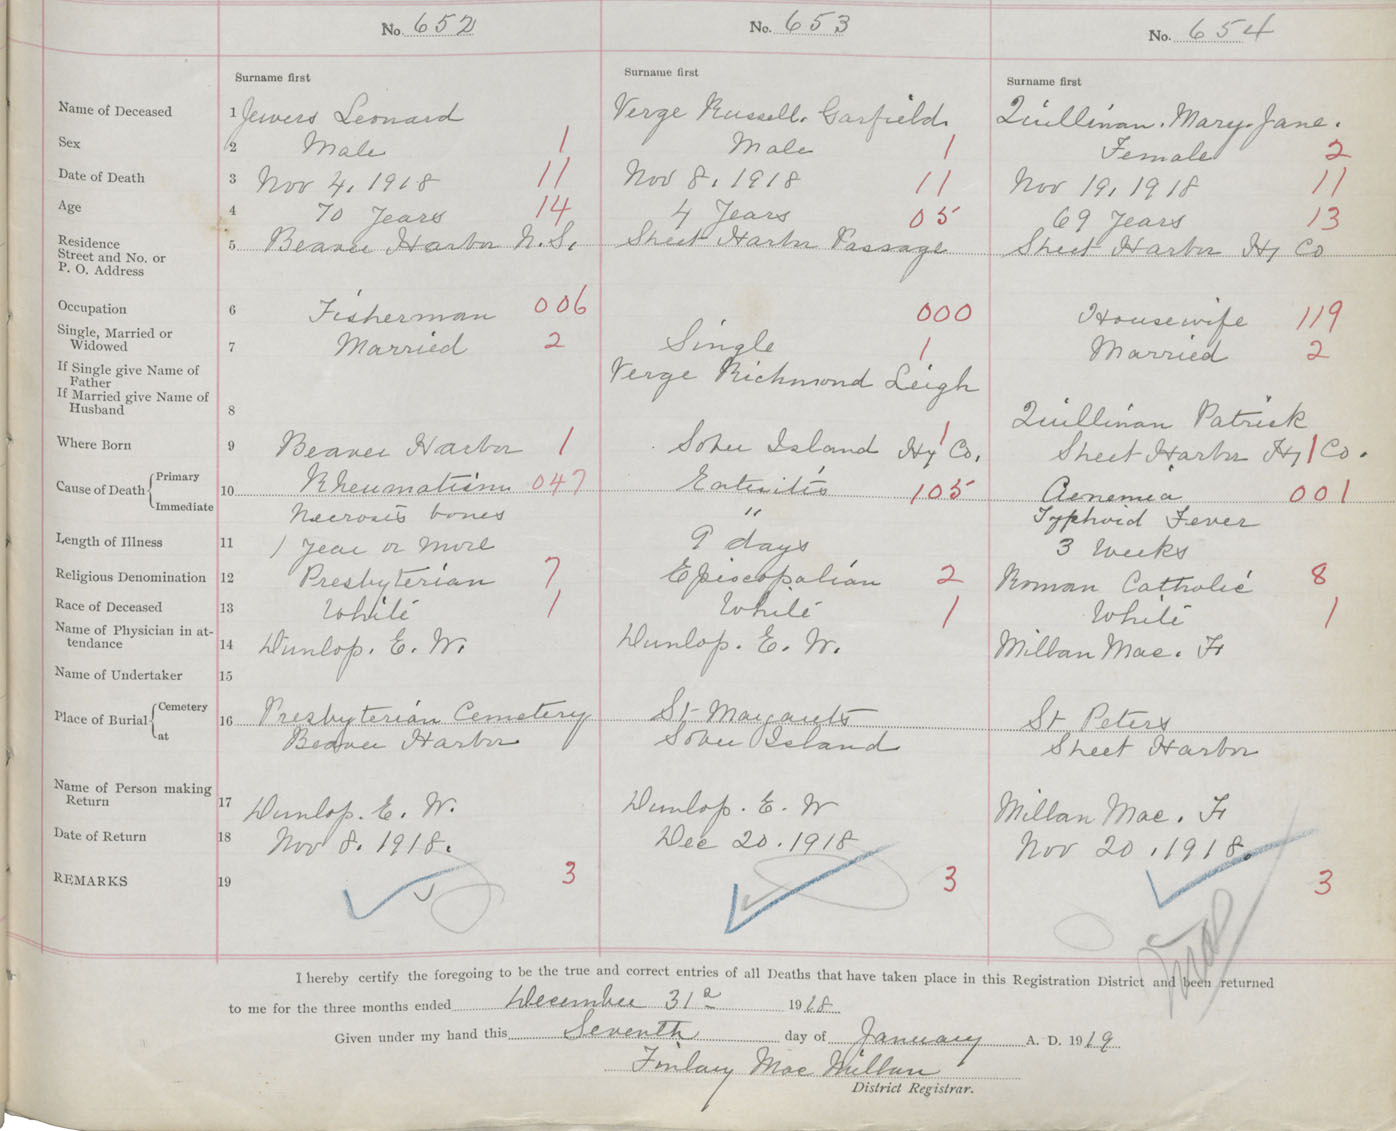 No. 652 No. 653 No. 654
Surname first Surname first Surname first
Name of Deceased 1 Jewers Leonard Verge Russell. Garfield. Quillinan. Mary. Jane.
Sex 2 Male 1 Male 1 Female 2
Date of Death 3 Nov 4, 1918 11 Nov 8, 1918 11 Nov 19, 1918 11
Age 4 70 Years 14 4 Years 05 69 Years 13
Residence
Street and No. or
P. O. Address
5 Beaver Harbor N.S. Sheet Harbor Passage Sheet Harbor Hx Co
Occupation 6 Fisherman 006 000 Housewife 119
Single, Married or
Widowed 7 Married 2 Single 1 Married 2
If Single give Name of
Father Verge Richmond Leigh
If Married give Name of
Husband 8 Quillinan Patrick
Where Born 9 Beaver Harbor 1 Sober Island Hx Co. 1 Sheet Harbor Hx Co. 1
Cause of Death Primary 10 Rheumatism 047 Enteritis 105 Aenemia 001
Immediate Necrosis bones " Typhoid Fever
Length of Illness 11 1 Year or more 9 days 3 Weeks
Religious Denomination 12 Presbyterian 7 Episcopalian 2 Roman Catholic 8
Race of Deceased 13 White 1 White 1 White 1
Name of Physician in at-
tendance 14 Dunlop. E. W. Dunlop. E. W. Millan Mac. F
Name of Undertaker 15
Place of Burial Cemetery 16 Presbyterian Cemetery St Margarets St Peters
at Beaver Harbor Sober Island Sheet Harbor
Name of Person making
Return 17 Dunlop. E. W. Dunlop. E. W Millan Mac. F
Date of Return 18 Nov 8. 1918. Dec 20. 1918 Nov 20. 1918.
REMARKS 19 3 3 3
I hereby certify the foregoing to be the true and correct entries of all Deaths that have taken place in this Registration District and been returned
to me for the three months ended December 31st 1918
Given under my hand this Seventh day of January A. D. 1919
Finlay Mac Millan
District Registrar.